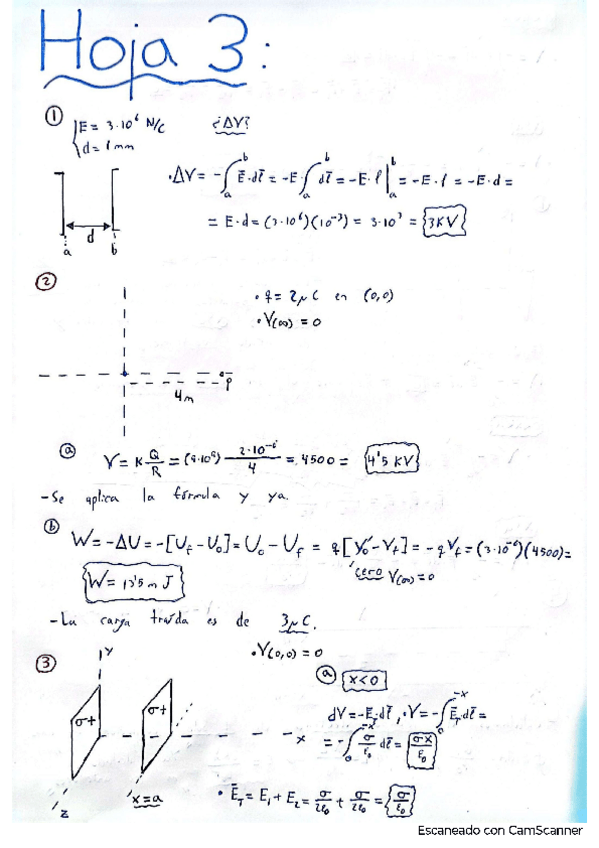 Hoja 3:
① E = 3·10⁶ N/C ¿ΔV?
d = 1 mm
·ΔV = -∫ₐᵇ E̅·dl̅ = -E·∫ₐᵇ dl̅ = -E·l|ₐᵇ = -E·l = -E·d =
= E·d = (3·10⁶)(10⁻³) = 3·10³ = 3KV
d
a b
②
· q = 2μC en (0,0)
· V(∞) = 0
P
4m
ⓐ V = K Q/R = (9·10⁹) 2·10⁻⁶/4 = 4500 = 4'5 KV
- Se aplica la fórmula y ya.
ⓑ W = -ΔU = -[U_f - U₀] = U₀ - U_f = q[V₀ - V_f] = -qV_f = (3·10⁻⁶)(4500) =
cero V(∞) = 0
W = 13'5 m J
- La carga traída es de 3μC.
③ y · V(0,0) = 0
ⓐ x<0
σ+ σ+
dV = -E̅_T·dl̅, · V = -∫₀⁻ˣ E̅_T dl̅ =
x
= -∫₀⁻ˣ σ/ε₀ dl̅ = σx/ε₀
x = a
z
· E̅_T = E₁ + E₂ = σ/2ε₀ + σ/2ε₀ = σ/ε₀
Escaneado con CamScanner